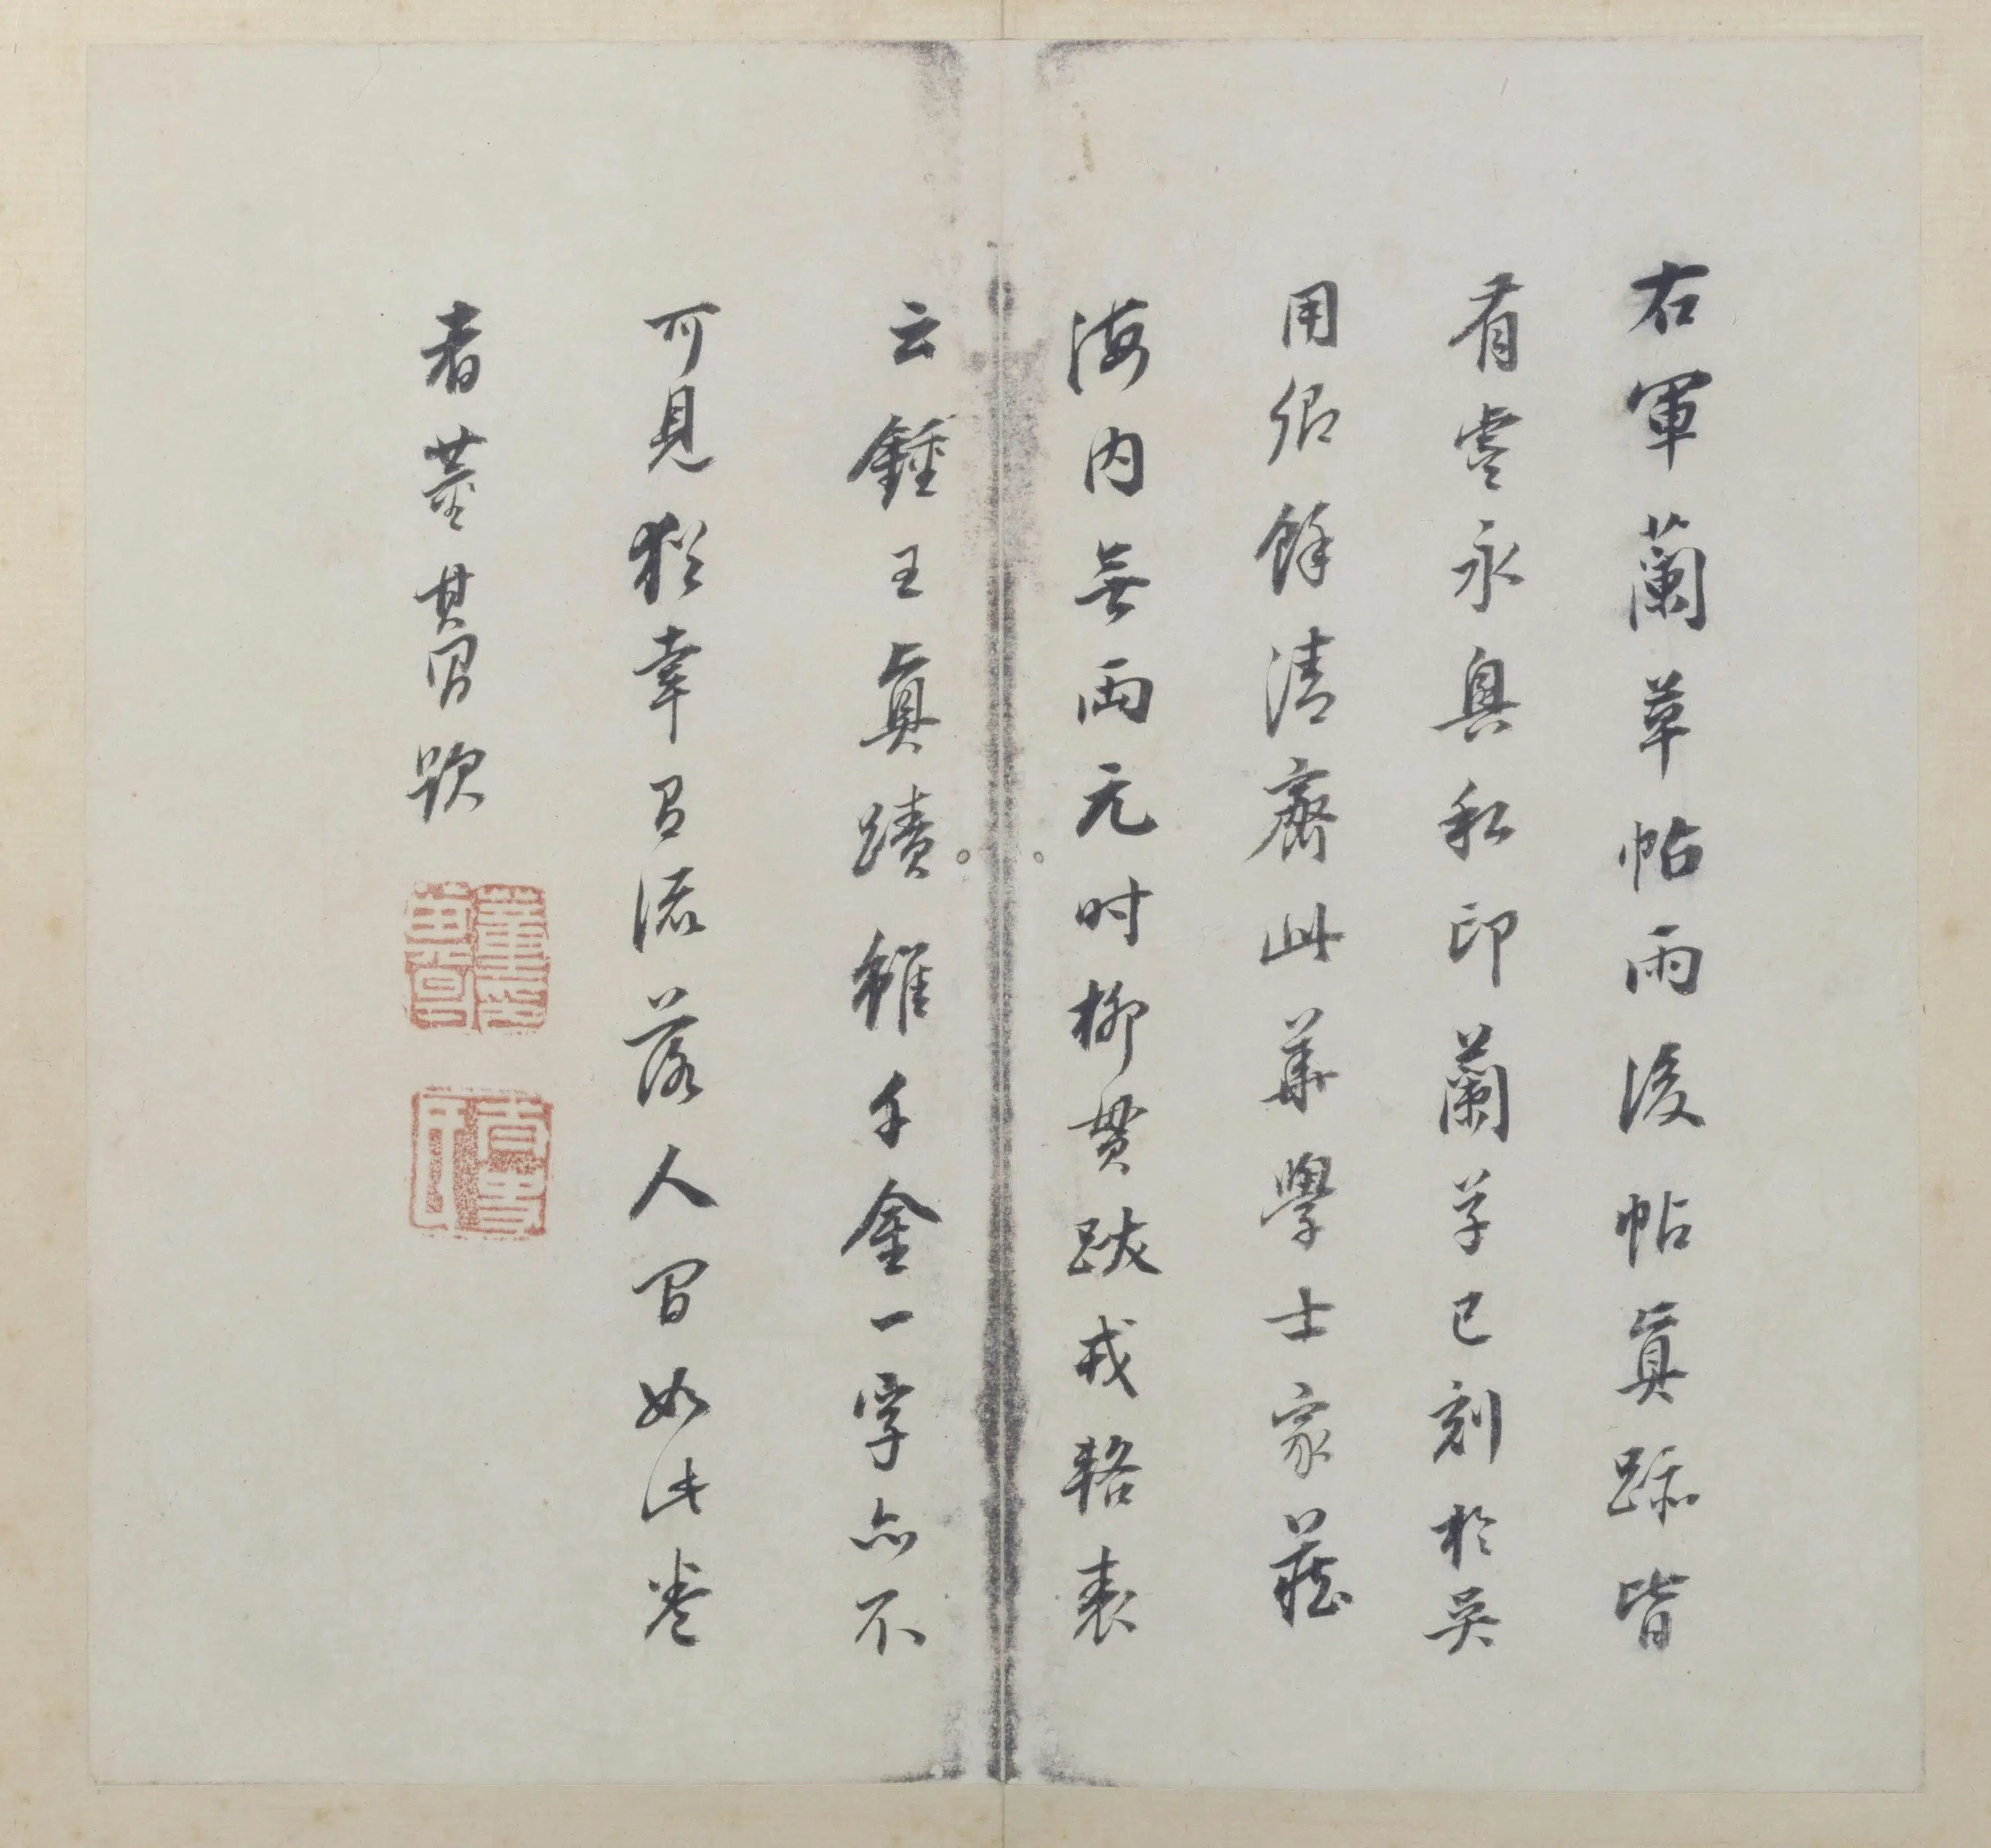 右軍蘭草帖雨後帖真跡皆
有虞永興私印蘭草已刻於吳
用卿餘清齋此華學士家藏
海内無兩元時柳貫跋戎輅表
云鍾王真蹟雖千金一字亦不
可見猶幸有流落人間如此卷
者董其昌題